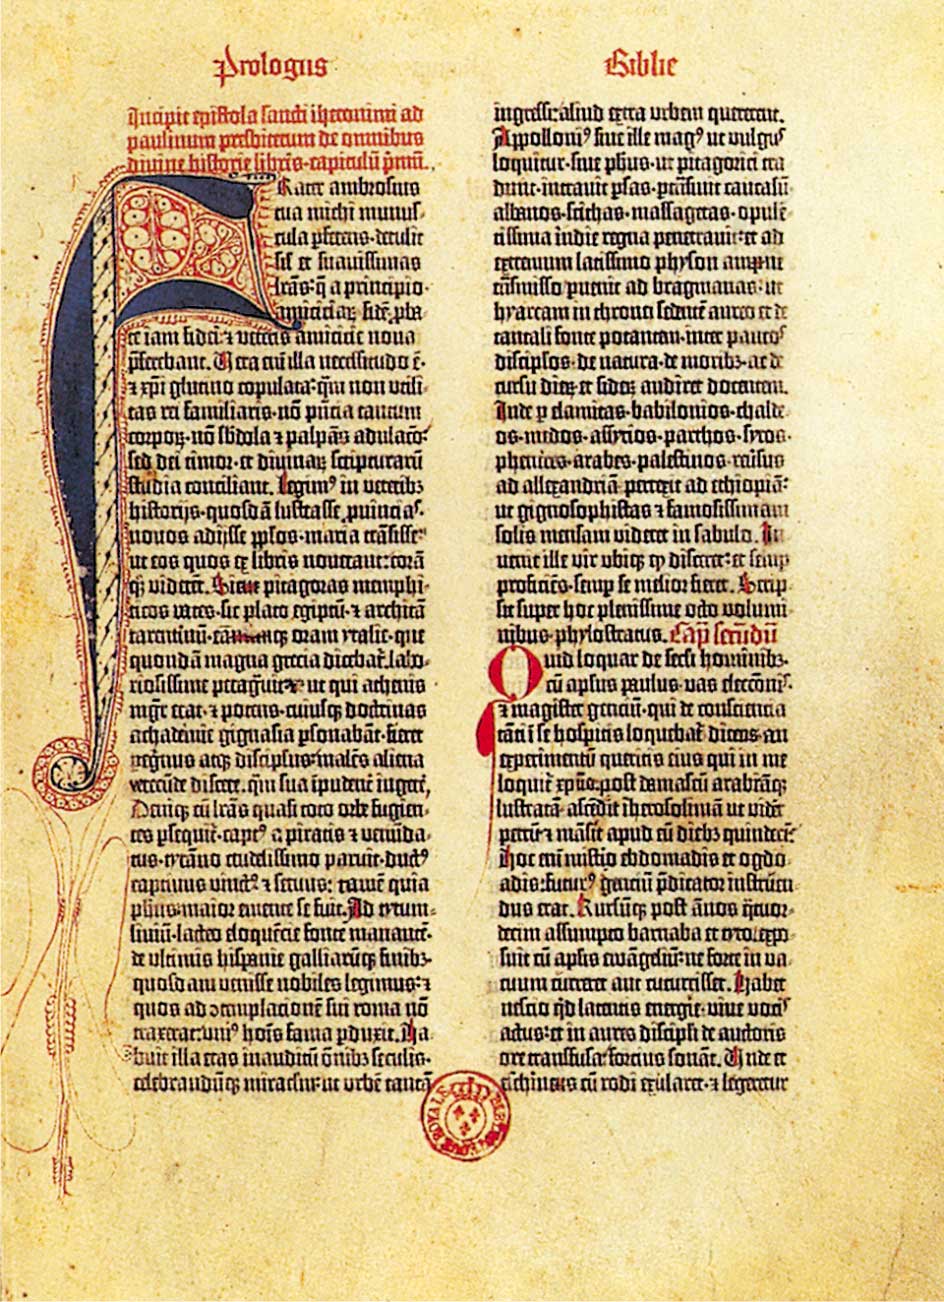 Prologus
Biblie
Incipit epistola sancti iheronimi ad
paulinum presbiterum de omnibus
divine historie libris. capitulū pͥmū.
Frater ambrosius
tua michi munus-
cula pferens. detulit
sił et suavissimas
lrās. q̄ a principio
amiciciaꝝ. fidē ꝓba-
te iam fidei ⁊ veteris amicicie nova
pferebant. Vera eni illa necessitudo ē.
⁊ xp̄i glutino copulata: q̄m non utili-
tas rei familiaris. nō pn̄cia tantum
corpoꝝ. nō sb̄dola ⁊ palpās adulacō:
sed dei timor. et divinaꝝ scripturarū
studia conciliant. Legimꝰ in veteribꝫ
historijs. quosdā lustrasse ꝓvinciaˢ.
novos adijsse pp̄los. maria trāsisse:
ut eos quos ex libris noverant: corā
qꝫ viderēt. Sicut pitagoras memphi-
ticos vates. sic plato egiptū. ⁊ architā
tarentinū. eamqꝫ oram ytalie. que
quondā magna grecia dicebat̄. labo-
riosissime peragͣvit ut qui athenis
mgr̄ erat. ⁊ potens. cuiusqꝫ doctrinas
achademie gignasia psonabāt. fieret
peg̊rinus atqꝫ discipulus: malēs aliena
verecūde discere. qͣm sua ipudent̄ iugere,
Deniqꝫ cū lrās quasi toto orbe fugien-
tes pseqͥr̄. captꝰ a piratis ⁊ venūda-
tus. tyrāno crudelissimo paruit. ductꝰ
captivus vinctꝰ ⁊ servus: tamē quia
phūs. maior emente se fuit. Ad tytum-
livium. lacteo eloquēcie fonte manantē.
de ultimis hispanie galliarūqꝫ finibꝫ.
quosdam venisse nobiles legimus: ⁊
quos ad ꝯtemplacionē sui roma nō
traxerat: uniꝰ hoīs fama pduxit. Ha-
buit illa etas inauditū ōnibꝫ seculis.
celebrandūqꝫ miraclm: ut urbē tantā
ingressi: aliud extra urbem quererent.
Appolloniꝰ sive ille magꝰ ut vulgꝰ
loquitur. sive phūs. ut pitagorici tra-
dunt. intravit psas. ptn̄sivit caucasū
albanos. scithas. massagetas. opulē-
tissima indie regna penetravit: et ad
extremum latissimo physon amne
trāsmisso pvenit ad bragmanas: ut
hyarcam in throno sedentē aureo et de
tantali fonte potantem. inter paucos
disciplos. de natura. de moribꝫ. ac de
cursu dieꝝ et sideꝝ audiret docentem.
Inde p elamitas. babilonios. chalde-
os. medos. assyrios. parthos. syros.
phenices. arabes. palestinos. reūsus
ad allexandriā: perrexit ad ethiopiā:
ut gignosophistas ⁊ famosissimam
solis mensam videret in sabulo. In-
venit ille vir ubiqꝫ qͩ disceret: et semp
proficiēs. semp se melior fieret. Scrip-
sit super hoc plenissime octo volumi-
nibus. phylostratus. Capͫ secundū
Quid loquar de secli hominibꝫ.
cū aplus paulus. vas electōnis.
⁊ magister genciū. qui de consciencia
tāti ī se hospitis loquebat̄ dicens. An
experimentū queritis eius qui in me
loquit̄ xpūs. post damascū arabiāqꝫ
lustratā: ascēdit iherosolimā ut vider̄
petrū ⁊ māsit apud eū diebꝫ quindecī.
Hoc enī misterio ebdomadis et ogdo-
adis: futurꝰ genciū p̄dicator instruen-
dus erat. Rursūqꝫ post ānos qͣtuor-
decim assumpto barnaba et tyto. expo-
suit cū aplīs ewāgeliū: ne forte in va-
cuum curreret aut cucurrisset. Habet
nescio qͥd latentis energie. vive vocis
actus: et in aures discipli de auctoris
ore transfusa: forcius sonat. Unde et
eschines cū rodi exularet. ⁊ legeretur